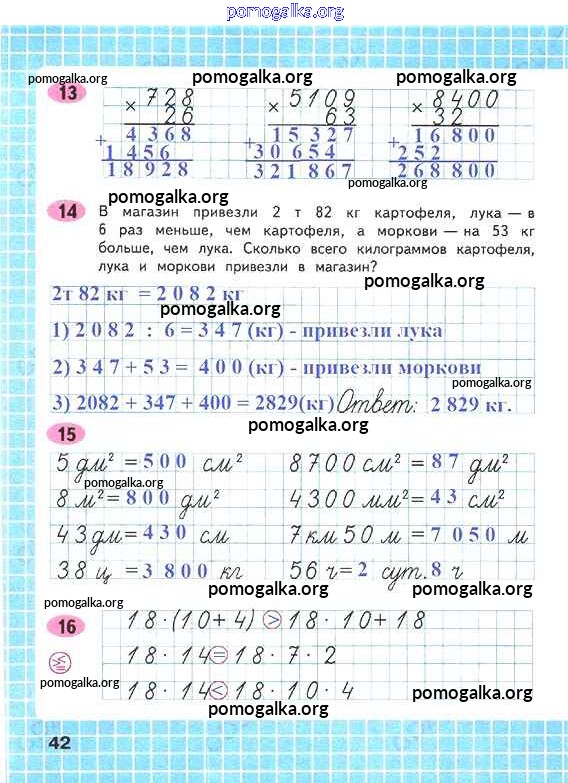 pomogalka.org
pomogalka.org pomogalka.org pomogalka.org
13
728 5109 8400
× 26 × 63 × 32
+ 4368 + 15327 + 16800
1456 30654 252
18928 321867 268800
pomogalka.org
pomogalka.org
14 В магазин привезли 2 т 82 кг картофеля, лука — в
6 раз меньше, чем картофеля, а моркови — на 53 кг
больше, чем лука. Сколько всего килограммов картофеля,
лука и моркови привезли в магазин?
pomogalka.org
2т 82 кг = 2082 кг
pomogalka.org
1) 2082 : 6 = 347 (кг) - привезли лука
2) 347 + 53 = 400 (кг) - привезли моркови
pomogalka.org
3) 2082 + 347 + 400 = 2829(кг) Ответ: 2 829 кг.
pomogalka.org
15
5 дм² = 500 см² 8700 см² = 87 дм²
pomogalka.org
8 м² = 800 дм² 4300 мм² = 43 см²
pomogalka.org
43 дм = 430 см 7 км 50 м = 7 050 м
38 ц = 3800 кг 56 ч = 2 сут. 8 ч
pomogalka.org pomogalka.org
16 18 · (10 + 4) > 18 · 10 + 18
18 · 14 = 18 · 7 · 2
pomogalka.org
18 · 14 < 18 · 10 · 4
pomogalka.org
pomogalka.org
42
pomogalka.org pomogalka.org